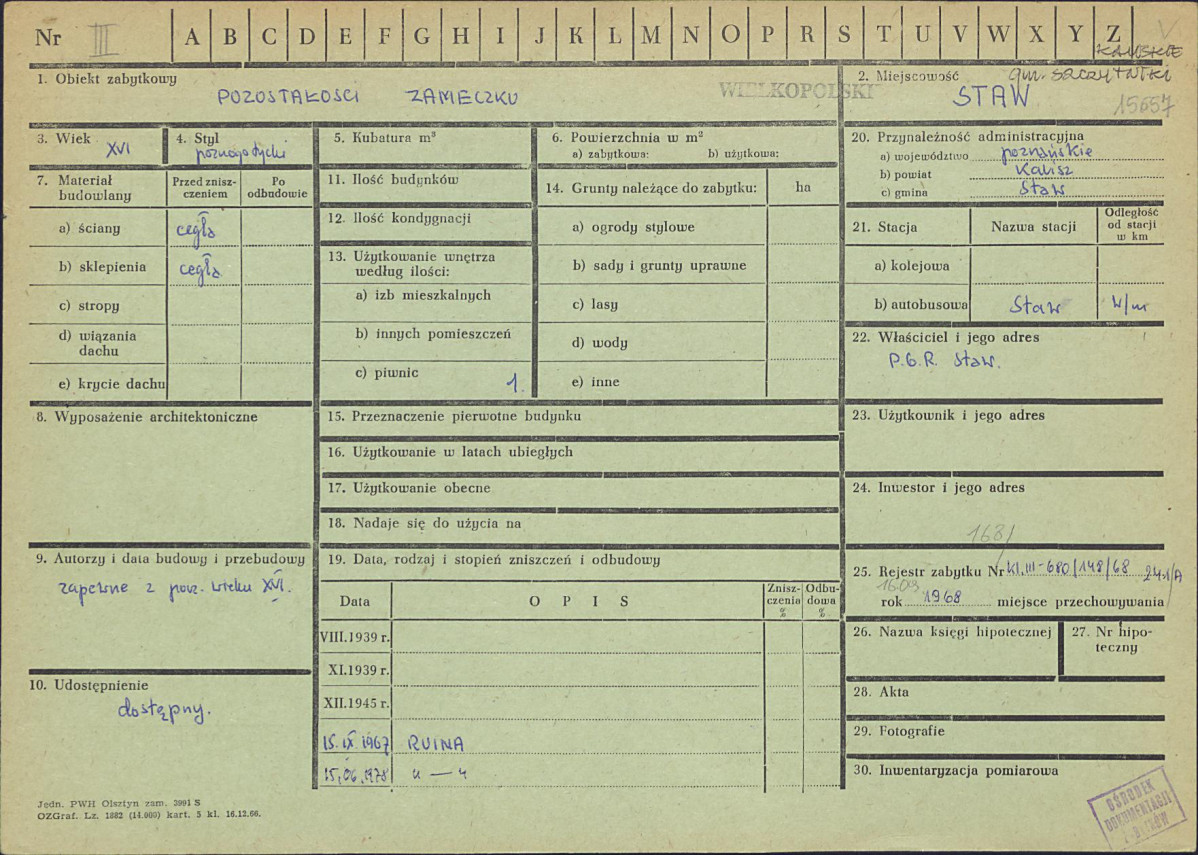 Nr III A B C D E F G H I J K L M N O P R S T U V W X Y Z
KALISKIE
1. Obiekt zabytkowy
POZOSTAŁOŚCI ZAMECZKU
WIELKOPOLSKI
2. Miejscowość gm. SZCZYTNIKI
STAW
15657
3. Wiek
XVI
4. Styl
późnogotycki
5. Kubatura m³
6. Powierzchnia w m²
a) zabytkowa: b) użytkowa:
20. Przynależność administracyjna
a) województwo poznańskie
b) powiat Kalisz
c) gmina Staw
7. Materiał budowlany
Przed zniszczeniem
Po odbudowie
a) ściany cegła
b) sklepienia cegła
c) stropy
d) wiązania dachu
e) krycie dachu
11. Ilość budynków
12. Ilość kondygnacji
13. Użytkowanie wnętrza według ilości:
a) izb mieszkalnych
b) innych pomieszczeń
c) piwnic 1.
14. Grunty należące do zabytku: ha
a) ogrody stylowe
b) sady i grunty uprawne
c) lasy
d) wody
e) inne
21. Stacja Nazwa stacji Odległość od stacji w km
a) kolejowa
b) autobusowa Staw w/m
22. Właściciel i jego adres
P.G.R. Staw.
8. Wyposażenie architektoniczne
15. Przeznaczenie pierwotne budynku
16. Użytkowanie w latach ubiegłych
17. Użytkowanie obecne
18. Nadaje się do użycia na
23. Użytkownik i jego adres
24. Inwestor i jego adres
168/
9. Autorzy i data budowy i przebudowy
zapewne z poz. wieku XVI.
19. Data, rodzaj i stopień zniszczeń i odbudowy
Data O P I S Zniszczenia % Odbudowa %
VIII.1939 r.
XI.1939 r.
XII.1945 r.
15.IX 1967 RUINA
15.06.1978 u — u
25. Rejestr zabytku Nr Kl.III-680/148/68
rok 1968 miejsce przechowywania
26. Nazwa księgi hipotecznej
27. Nr hipoteczny
28. Akta
29. Fotografie
30. Inwentaryzacja pomiarowa
10. Udostępnienie
dostępny.
Jedn. PWH Olsztyn zam. 3991 S
OZGraf. Lz. 1882 (14.000) kart. 5 kl. 16.12.66.
OŚRODEK
DOKUMENTACJI